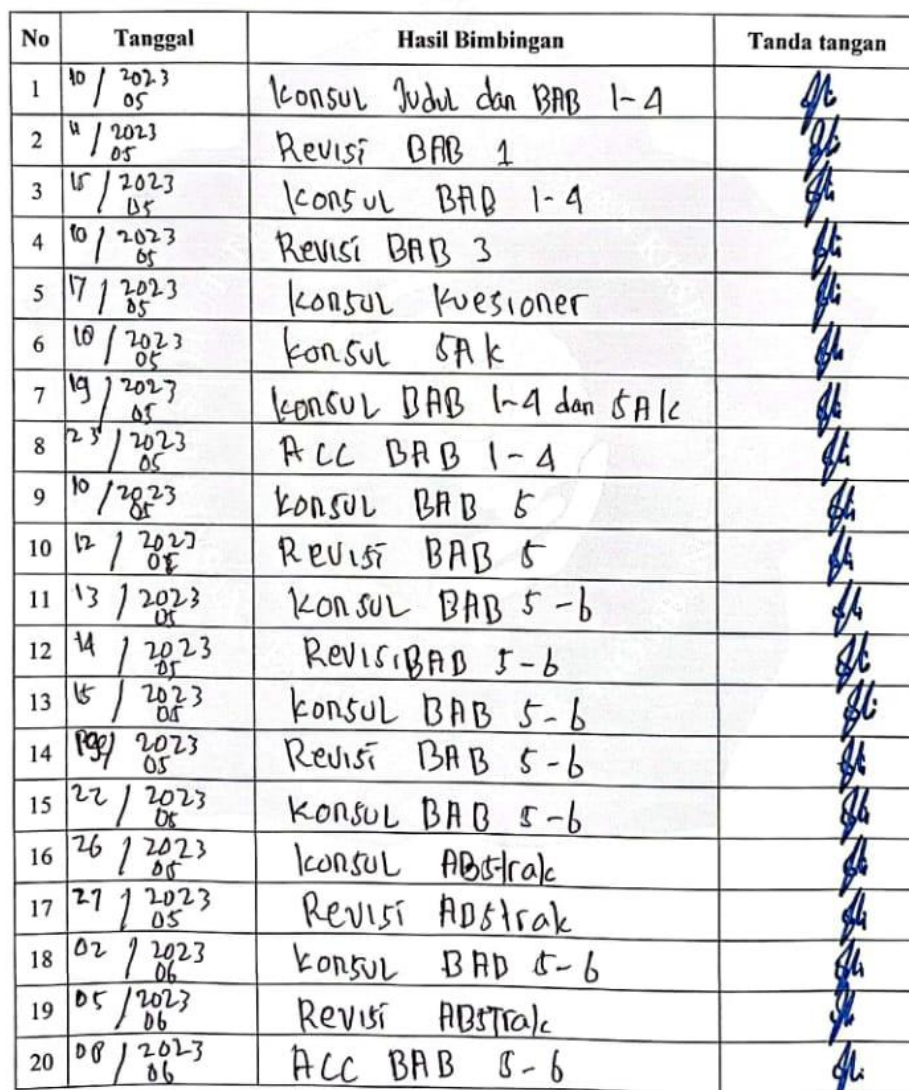 No Tanggal Hasil Bimbingan Tanda tangan
1 10 / 2023 05 Konsul Judul dan BAB 1-4
2 11 / 2023 05 Revisi BAB 1
3 15 / 2023 05 Konsul BAB 1-4
4 10 / 2023 05 Revisi BAB 3
5 17 / 2023 05 Konsul Kuesioner
6 18 / 2023 05 Konsul SAK
7 19 / 2023 05 Konsul BAB 1-4 dan SAK
8 23 / 2023 05 ACC BAB 1-4
9 10 / 2023 05 Konsul BAB 5
10 12 / 2023 05 Revisi BAB 5
11 13 / 2023 05 Konsul BAB 5-6
12 14 / 2023 05 Revisi BAB 5-6
13 15 / 2023 05 Konsul BAB 5-6
14 / 2023 05 Revisi BAB 5-6
15 22 / 2023 05 Konsul BAB 5-6
16 26 / 2023 05 Konsul ABstrak
17 27 / 2023 05 Revisi ABstrak
18 02 / 2023 06 Konsul BAB 5-6
19 05 / 2023 06 Revisi ABSTrak
20 08 / 2023 06 ACC BAB 5-6